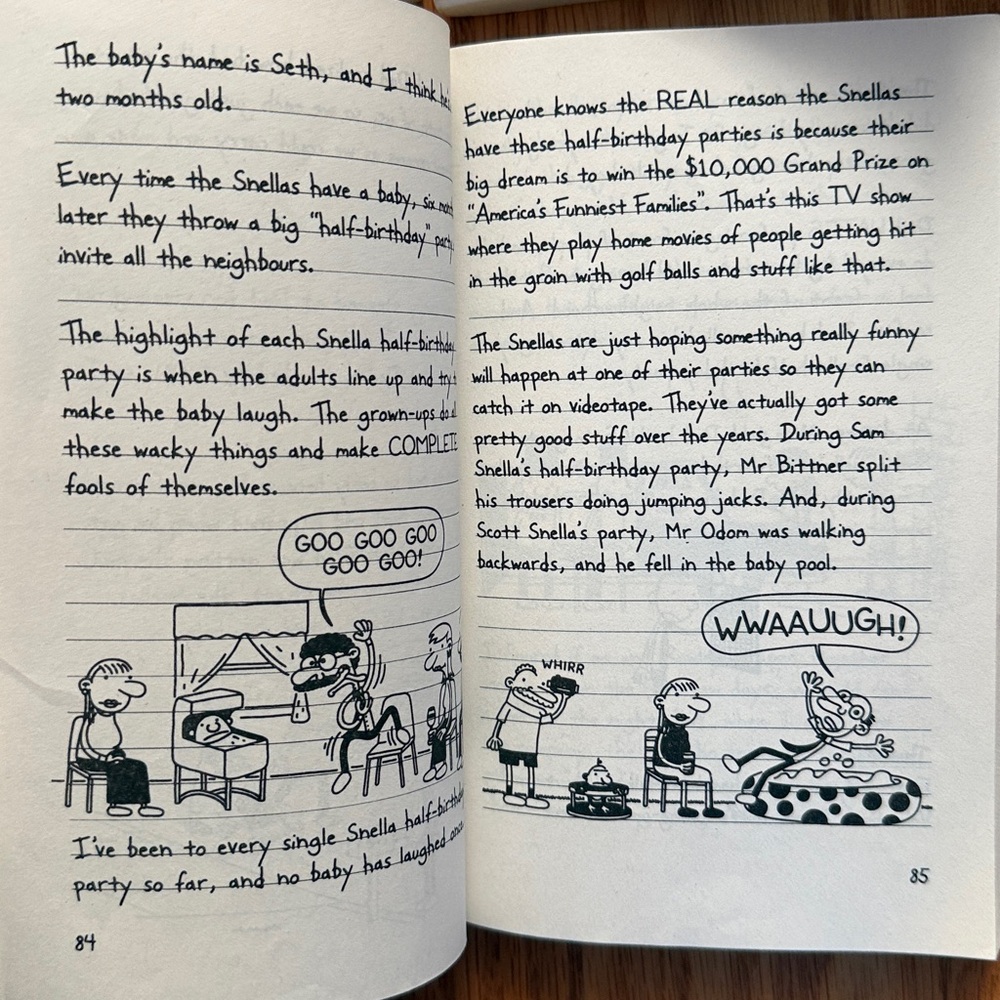 The baby's name is Seth, and I think he's
two months old.
Every time the Snellas have a baby, six months
later they throw a big "half-birthday" party
invite all the neighbours.
The highlight of each Snella half-birthday
party is when the adults line up and try t
make the baby laugh. The grown-ups do all
these wacky things and make COMPLETE
fools of themselves.
GOO GOO GOO
GOO GOO!
I've been to every single Snella half-birthday
party so far, and no baby has laughed once
84
Everyone knows the REAL reason the Snellas
have these half-birthday parties is because their
big dream is to win the $10,000 Grand Prize on
"America's Funniest Families". That's this TV show
where they play home movies of people getting hit
in the groin with golf balls and stuff like that.
The Snellas are just hoping something really funny
will happen at one of their parties so they can
catch it on videotape. They've actually got some
pretty good stuff over the years. During Sam
Snella's half-birthday party, Mr Bittner split
his trousers doing jumping jacks. And, during
Scott Snella's party, Mr Odom was walking
backwards, and he fell in the baby pool.
WWAAUUGH!
WHIRR
85